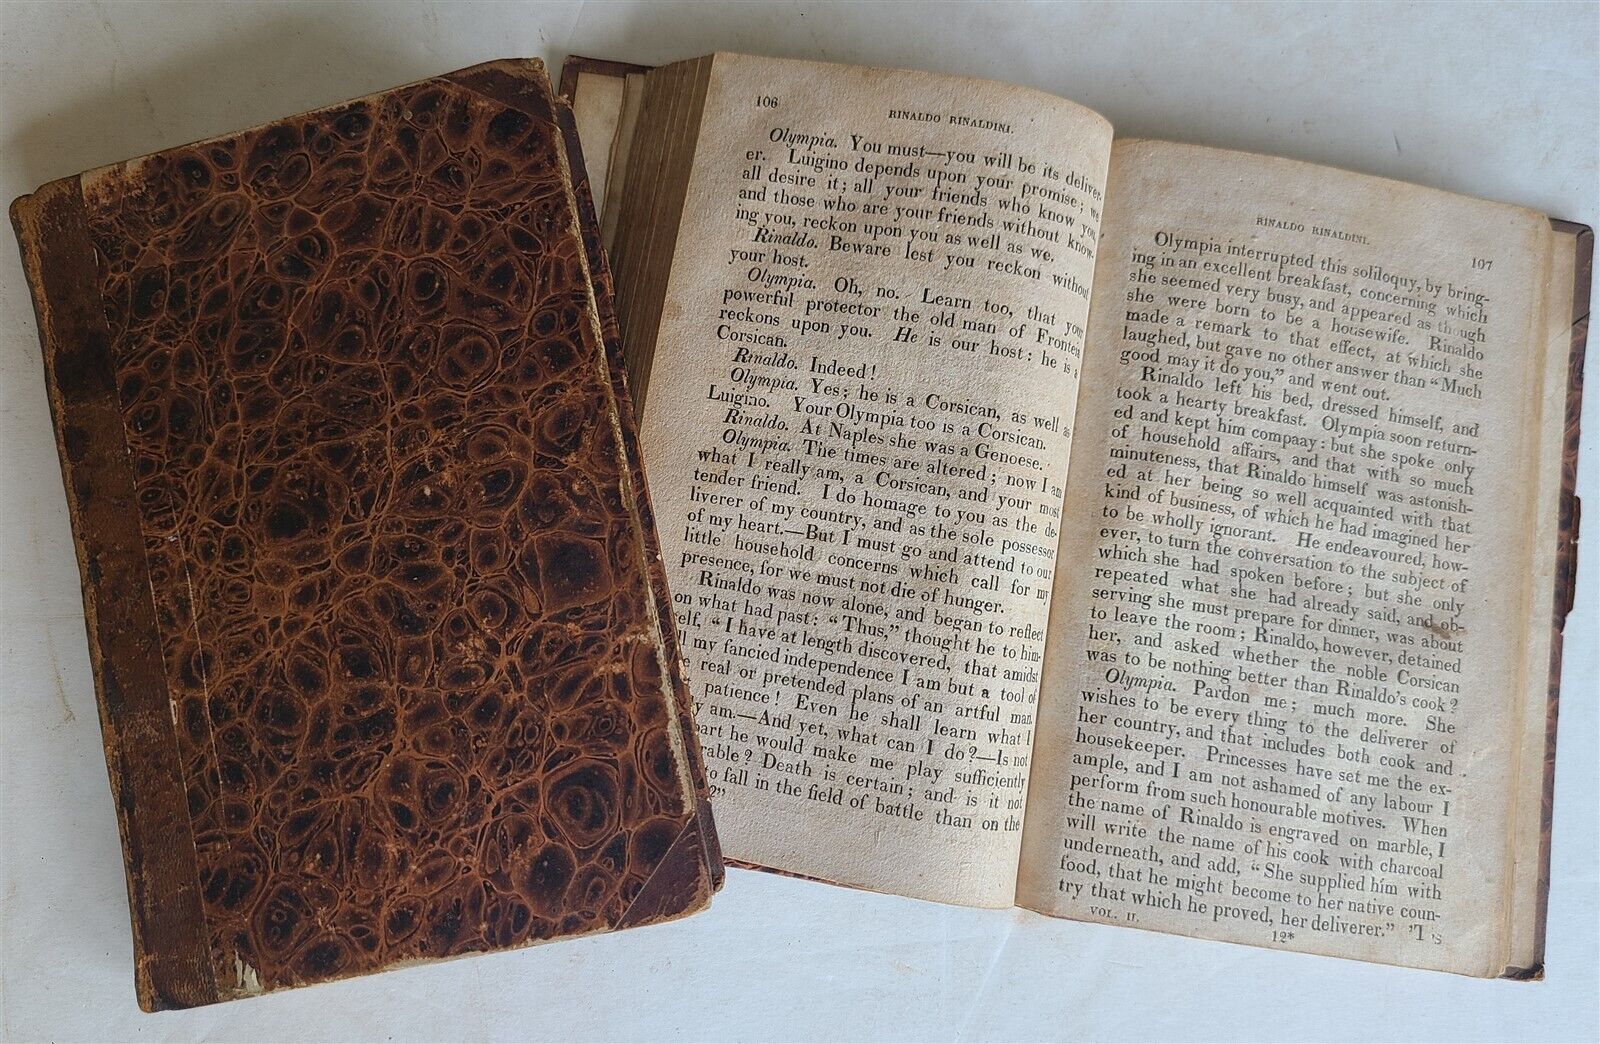 106
RINALDO RINALDINI.
Olympia. You must—you will be its deliver-
er. Luigino depends upon your promise; we
all desire it; all your friends who know you,
and those who are your friends without know-
ing you, reckon upon you as well as we.
Rinaldo. Beware lest you reckon without
your host.
Olympia. Oh, no. Learn too, that your
powerful protector the old man of Fronteia
reckons upon you. He is our host: he is a
Corsican.
Rinaldo. Indeed!
Olympia. Yes; he is a Corsican, as well as
Luigino. Your Olympia too is a Corsican.
Rinaldo. At Naples she was a Genoese.
Olympia. The times are altered; now I am
what I really am, a Corsican, and your most
tender friend. I do homage to you as the de-
liverer of my country, and as the sole possessor
of my heart.—But I must go and attend to our
little household concerns which call for my
presence, for we must not die of hunger.
Rinaldo was now alone, and began to reflect
on what had past: "Thus," thought he to him-
self, "I have at length discovered, that amidst
ll my fancied independence I am but a tool of
e real or pretended plans of an artful man.
patience! Even he shall learn what I
y am.—And yet, what can I do?—Is not
part he would make me play sufficiently
rable? Death is certain; and is it not
to fall in the field of battle than on the
?"
RINALDO RINALDINI.
107
Olympia interrupted this soliloquy, by bring-
ing in an excellent breakfast, concerning which
she seemed very busy, and appeared as though
she were born to be a housewife. Rinaldo
made a remark to that effect, at which she
laughed, but gave no other answer than "Much
good may it do you," and went out.
Rinaldo left his bed, dressed himself, and
took a hearty breakfast. Olympia soon return-
ed and kept him compaay: but she spoke only
of household affairs, and that with so much
minuteness, that Rinaldo himself was astonish-
ed at her being so well acquainted with that
kind of business, of which he had imagined her
to be wholly ignorant. He endeavoured, how-
ever, to turn the conversation to the subject of
which she had spoken before; but she only
repeated what she had already said, and ob-
serving she must prepare for dinner, was about
to leave the room; Rinaldo, however, detained
her, and asked whether the noble Corsican
was to be nothing better than Rinaldo's cook?
Olympia. Pardon me; much more. She
wishes to be every thing to the deliverer of
her country, and that includes both cook and
housekeeper. Princesses have set me the ex-
ample, and I am not ashamed of any labour I
perform from such honourable motives. When
the name of Rinaldo is engraved on marble, I
will write the name of his cook with charcoal
underneath, and add, "She supplied him with
food, that he might become to her native coun-
try that which he proved, her deliverer." 'T s
VOL. II.
12*